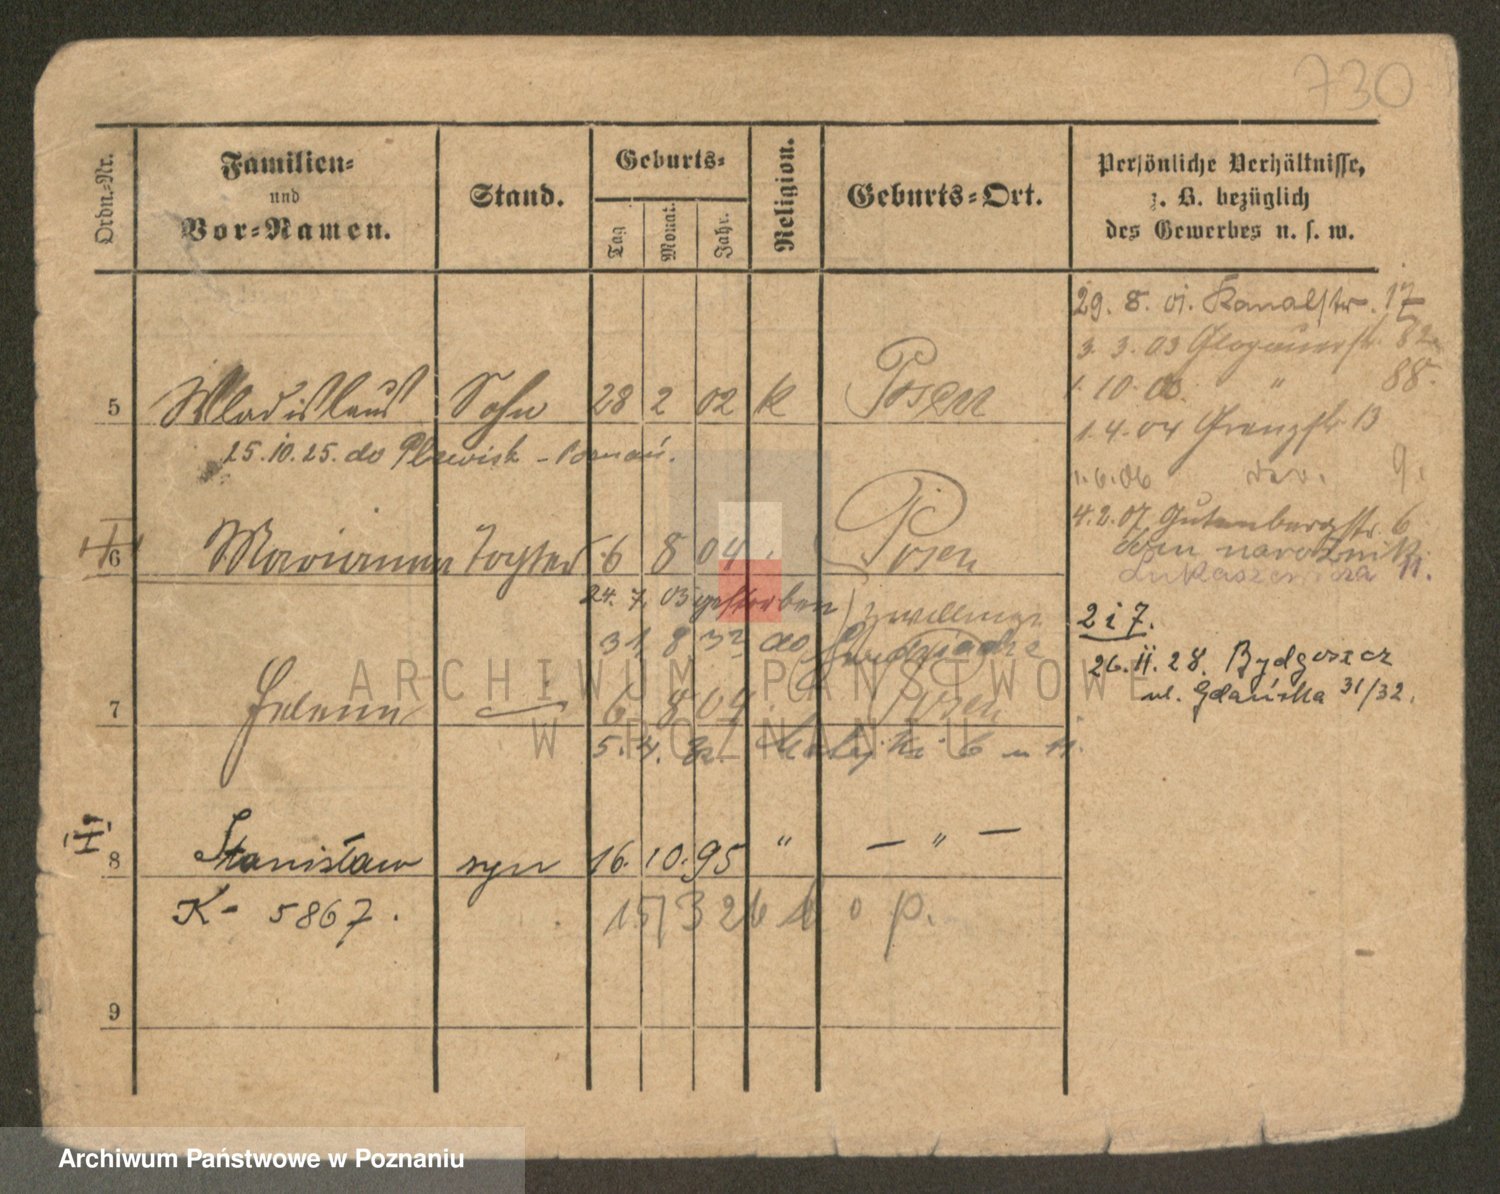 730
Ordn.-Nr.
Familien-
und
Vor-Namen.
Stand.
Geburts-
Tag
Monat.
Jahr.
Religion.
Geburts-Ort.
Persönliche Verhältnisse,
z. B. bezüglich
des Gewerbes u. s. w.
29. 8. 01. Kanalstr. 17
3. 3. 03 Glogauerstr. 82
1. 10. 03. " 88.
5 Wladislaus Sohn 28 2 02 k Posen
1. 4. 04 Grenzstr. 13
25.10.25. do - Poznań.
1.6.06 9.
4.2.07. Gutenbergstr. 6
6 Marianna Tochter 6 8 04 Posen
dom narożnik
Łukaszewicza 11.
24. 7. 03 gestorben Zwillinge
2 i 7.
31 8 32 do
26. II. 28. Bydgoszcz
ul. Gdańska 31/32.
7 Helene 6 8 04 Posen
5. 4. 6 11.
II
8 Stanisław syn 16. 10. 95 " — " —
K - 5867.
15/3 26 o p.
9
ARCHIWUM PAŃSTWOWE
W POZNANIU
Archiwum Państwowe w Poznaniu